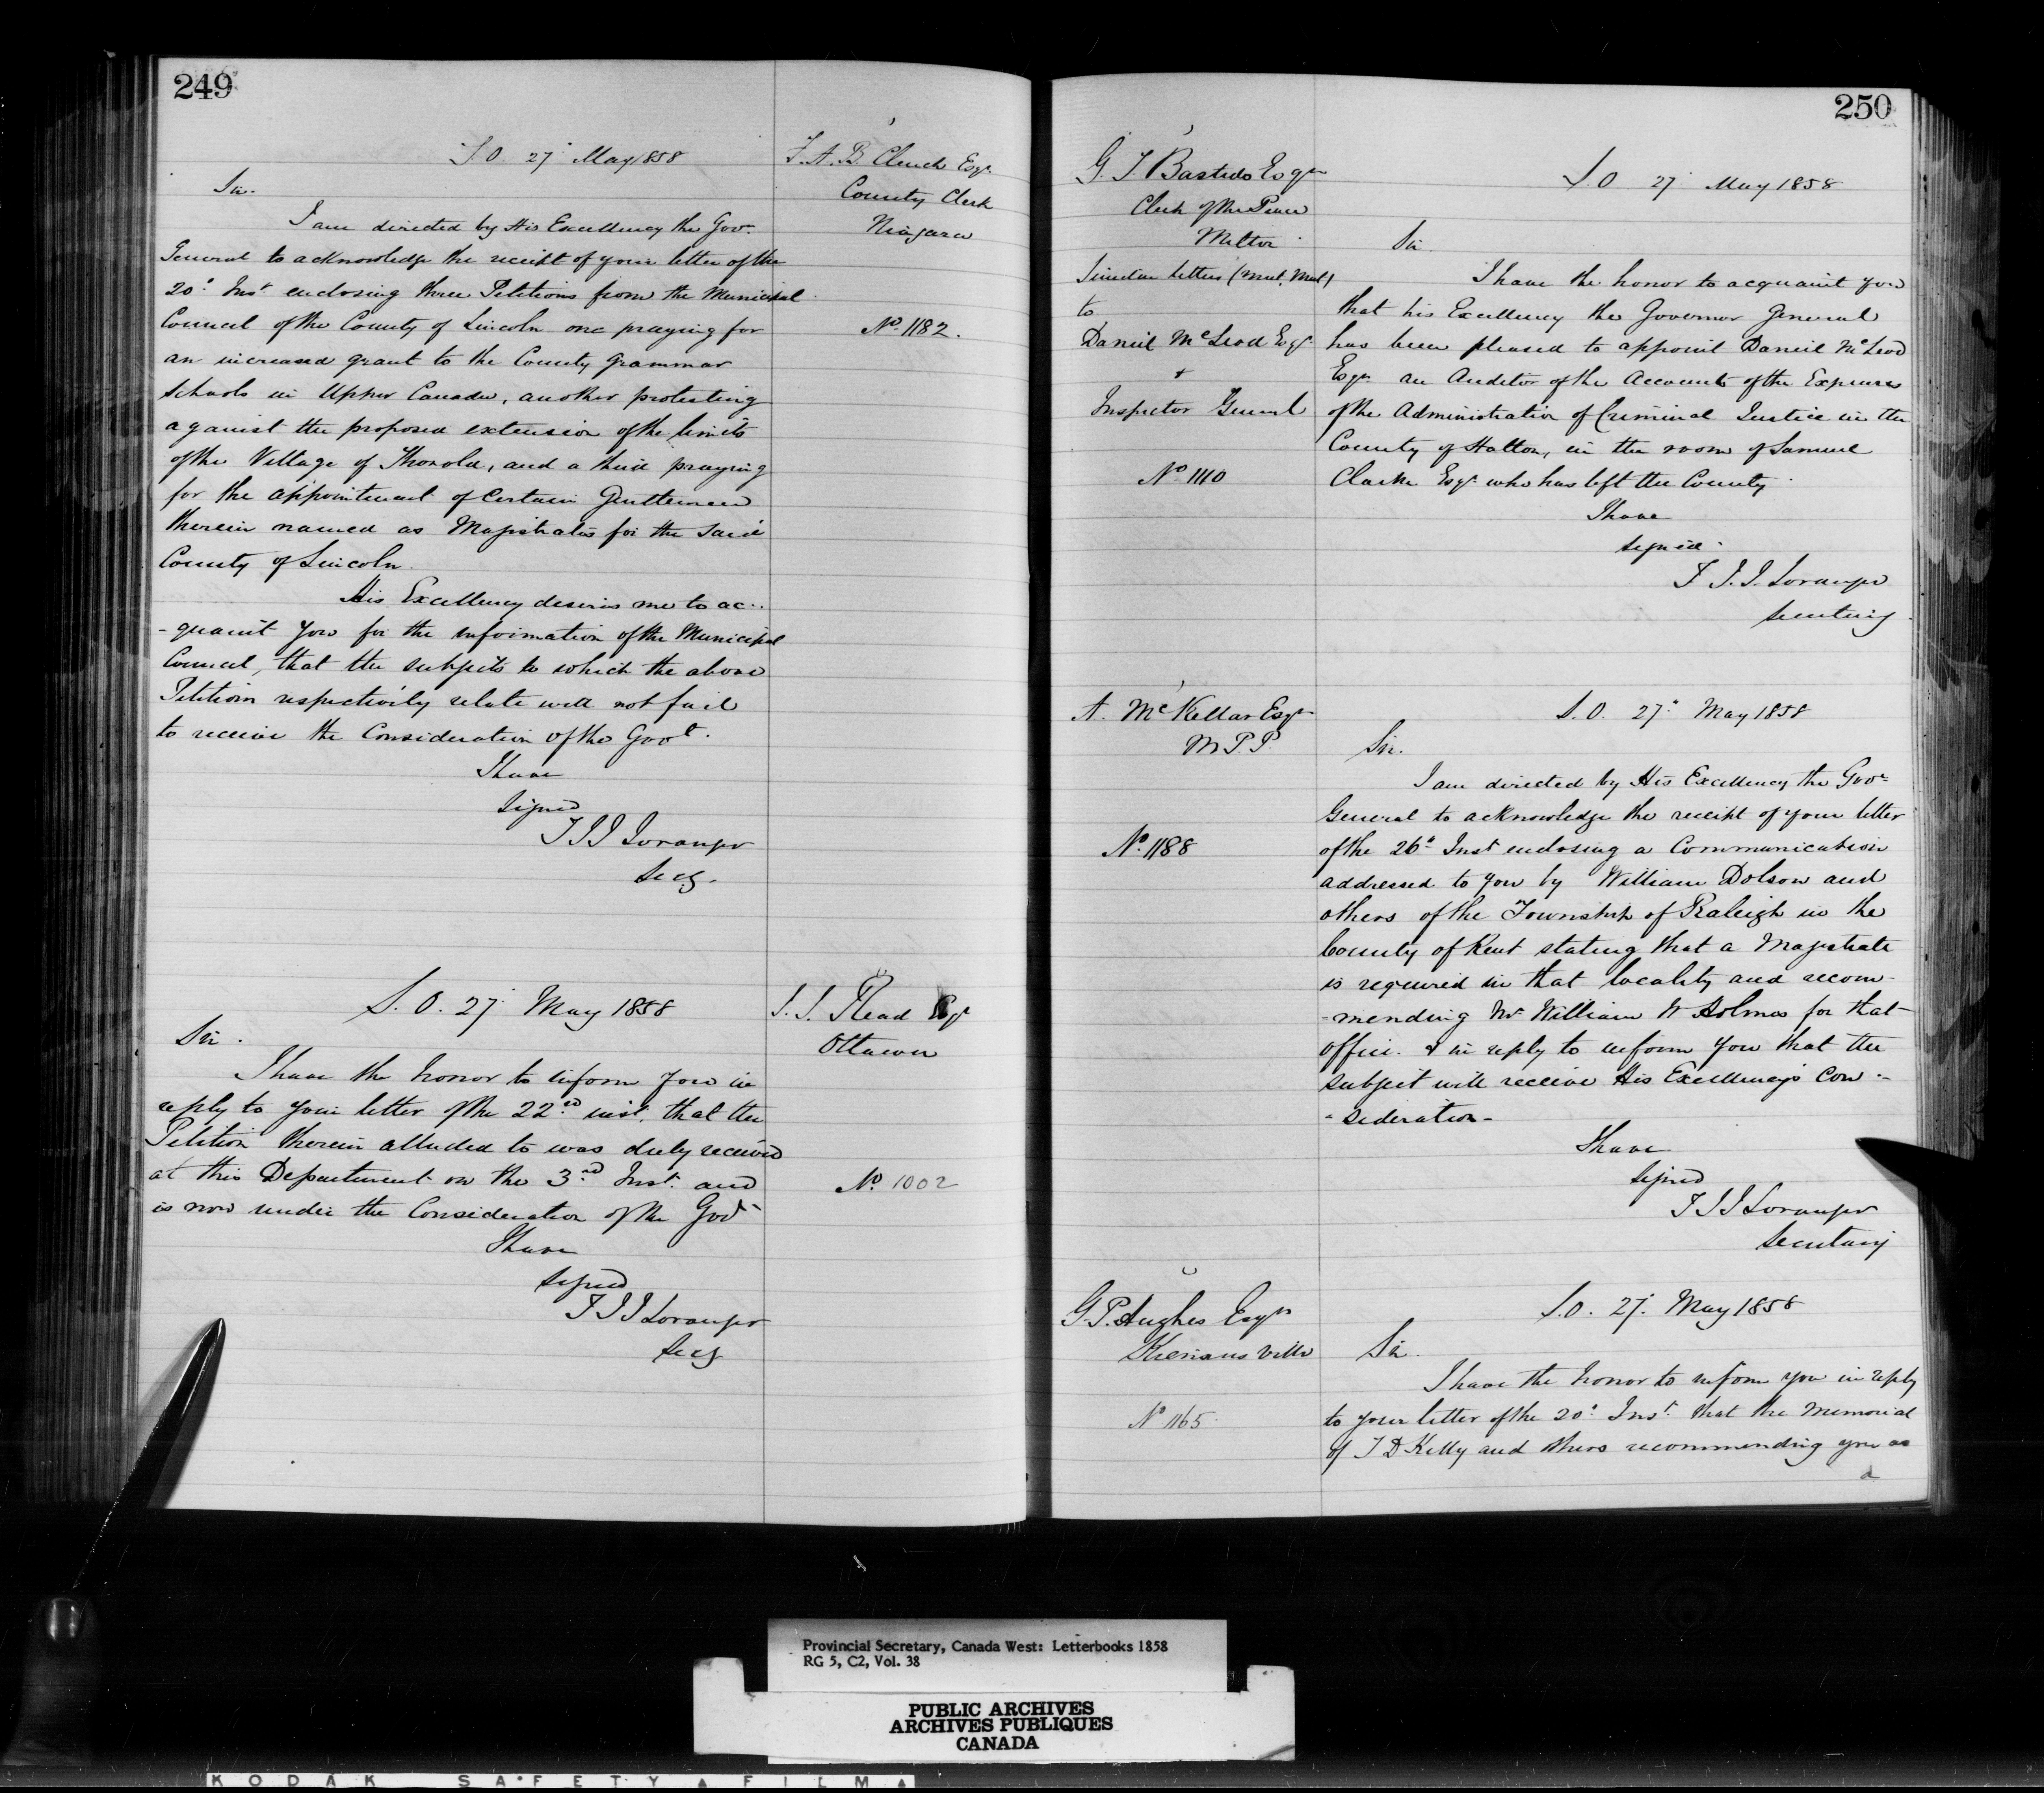 249
S.O. 27 May 1858
F. A. B. Clench Esqr
County Clerk
Niagara
No 1182.
Sir.
I am directed by His Excellency the Govr
General to acknowledge the receipt of your letter of the
20th Inst enclosing three Petitions from the Municipal
Council of the County of Lincoln one praying for
an increased grant to the County Grammar
Schools in Upper Canada, another protesting
against the proposed extension of the limits
of the Village of Thorold, and a third praying
for the appointment of Certain Gentlemen
therein named as Magistrates for the said
County of Lincoln.
His Excellency desires me to ac-
-quaint you for the information of the Municipal
Council, that the subjects to which the above
Petitions respectively relate will not fail
to receive the Consideration of the Govt.
I have
Signed
T J J Loranger
Secy.
S.O. 27 May 1858
Read Esqr
Ottawa
No 1002
Sir.
I have the honor to inform you in
reply to your letter of the 22nd inst. that the
Petition therein alluded to was duly received
at this Department on the 3rd Inst. and
is now under the Consideration of the Govt
I have
Signed
T J J Loranger
Secy
250
G. T. Bastedo Esqr
Clerk of the Peace
Milton
Similar letters (Mut. Mut)
to
Daniel McLeod Esqr
&
Inspector General
No 1110
S.O. 27 May 1858
Sir
I have the honor to acquaint you
that his Excellency the Governor General
has been pleased to appoint Daniel McLeod
Esqr an Auditor of the Accounts of the Expenses
of the Administration of Criminal Justice in the
County of Halton, in the room of Samuel
Clarke Esqr who has left the County.
I have
signed
T. J. J. Loranger
Secretary
A. McKellar Esqr
M.P.P.
No 1188
S.O. 27th May 1858
Sir.
I am directed by His Excellency the Govr
General to acknowledge the receipt of your letter
of the 26th Inst enclosing a Communication
addressed to you by William Dolson and
others of the Township of Raleigh in the
County of Kent stating that a Magistrate
is required in that locality and recom-
-mending Mr William W Holmes for that
office. & in reply to inform you that the
subject will receive His Excellency's Con-
-sideration-
I have
Signed
T J J Loranger
Secretary
G. P. Hughes Esqr
Keenansville
No 1165
S.O. 27. May 1858
Sir.
I have the honor to inform you in reply
to your letter of the 20th Inst. that the Memorial
of T D Kelly and others recommending you as
a
Provincial Secretary, Canada West: Letterbooks 1858
RG 5, C2, Vol. 38
PUBLIC ARCHIVES
ARCHIVES PUBLIQUES
CANADA
KODAK SAFETY FILM